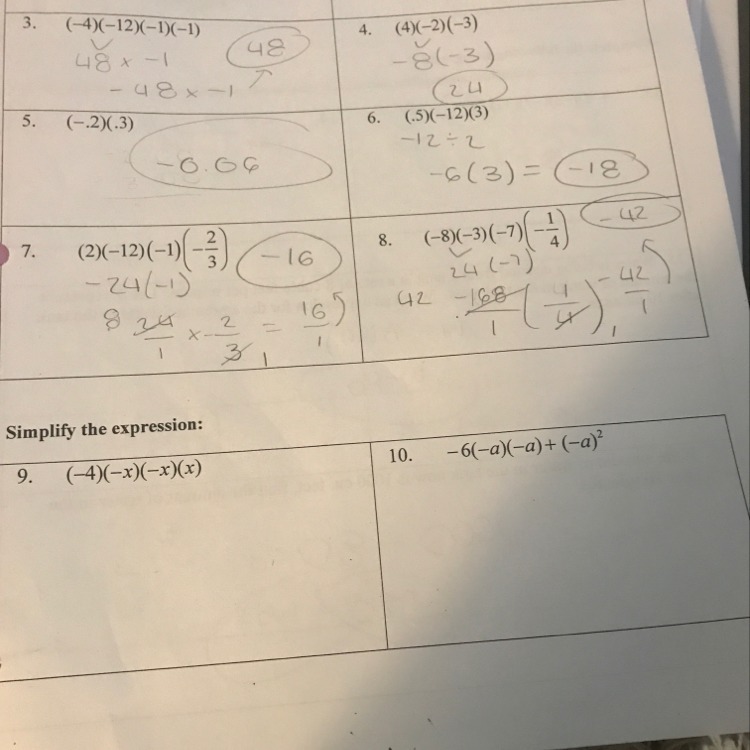 3. (−4)(−12)(−1)(−1)
48 × -1
48
- 48 × -1
4. (4)(−2)(−3)
-8(-3)
24
5. (−.2)(.3)
-0.06
6. (.5)(−12)(3)
-12 ÷ 2
-6(3) = -18
7. (2)(−12)(−1)(−2/3)
-16
-24(-1)
8 24/1 × -2/3 1 = 16/1
8. (−8)(−3)(−7)(−1/4)
-42
24 (-7)
42 -168/1 (1/4) 1 -42/1
Simplify the expression:
9. (−4)(−x)(−x)(x)
10. −6(−a)(−a) + (−a)²